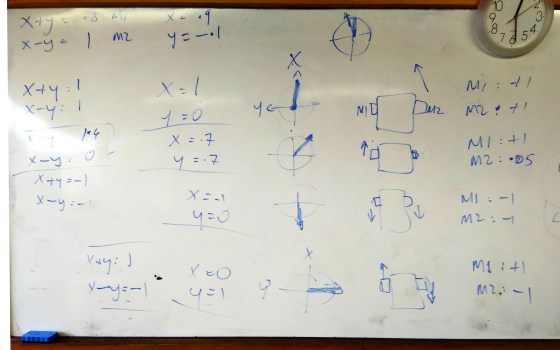 x+y = .8 M1 x = .9
x-y = 1 M2 y = -.1
10 2
9 3
8 4
7 6 5
X
x+y : 1 x = 1 M1 : +1
x-y : 1 y = 0 Y M1 M2 M2 : +1
x+y 1.4 x = .7 M1 : +1
x-y : 0 y = .7 M2 : .05
x+y = -1 x = -1 M1 : -1
x-y = - y = 0 M2 : -1
X
x+y : 1 x = 0 M1 : +1
x-y = -1 y = 1 M2 : -1